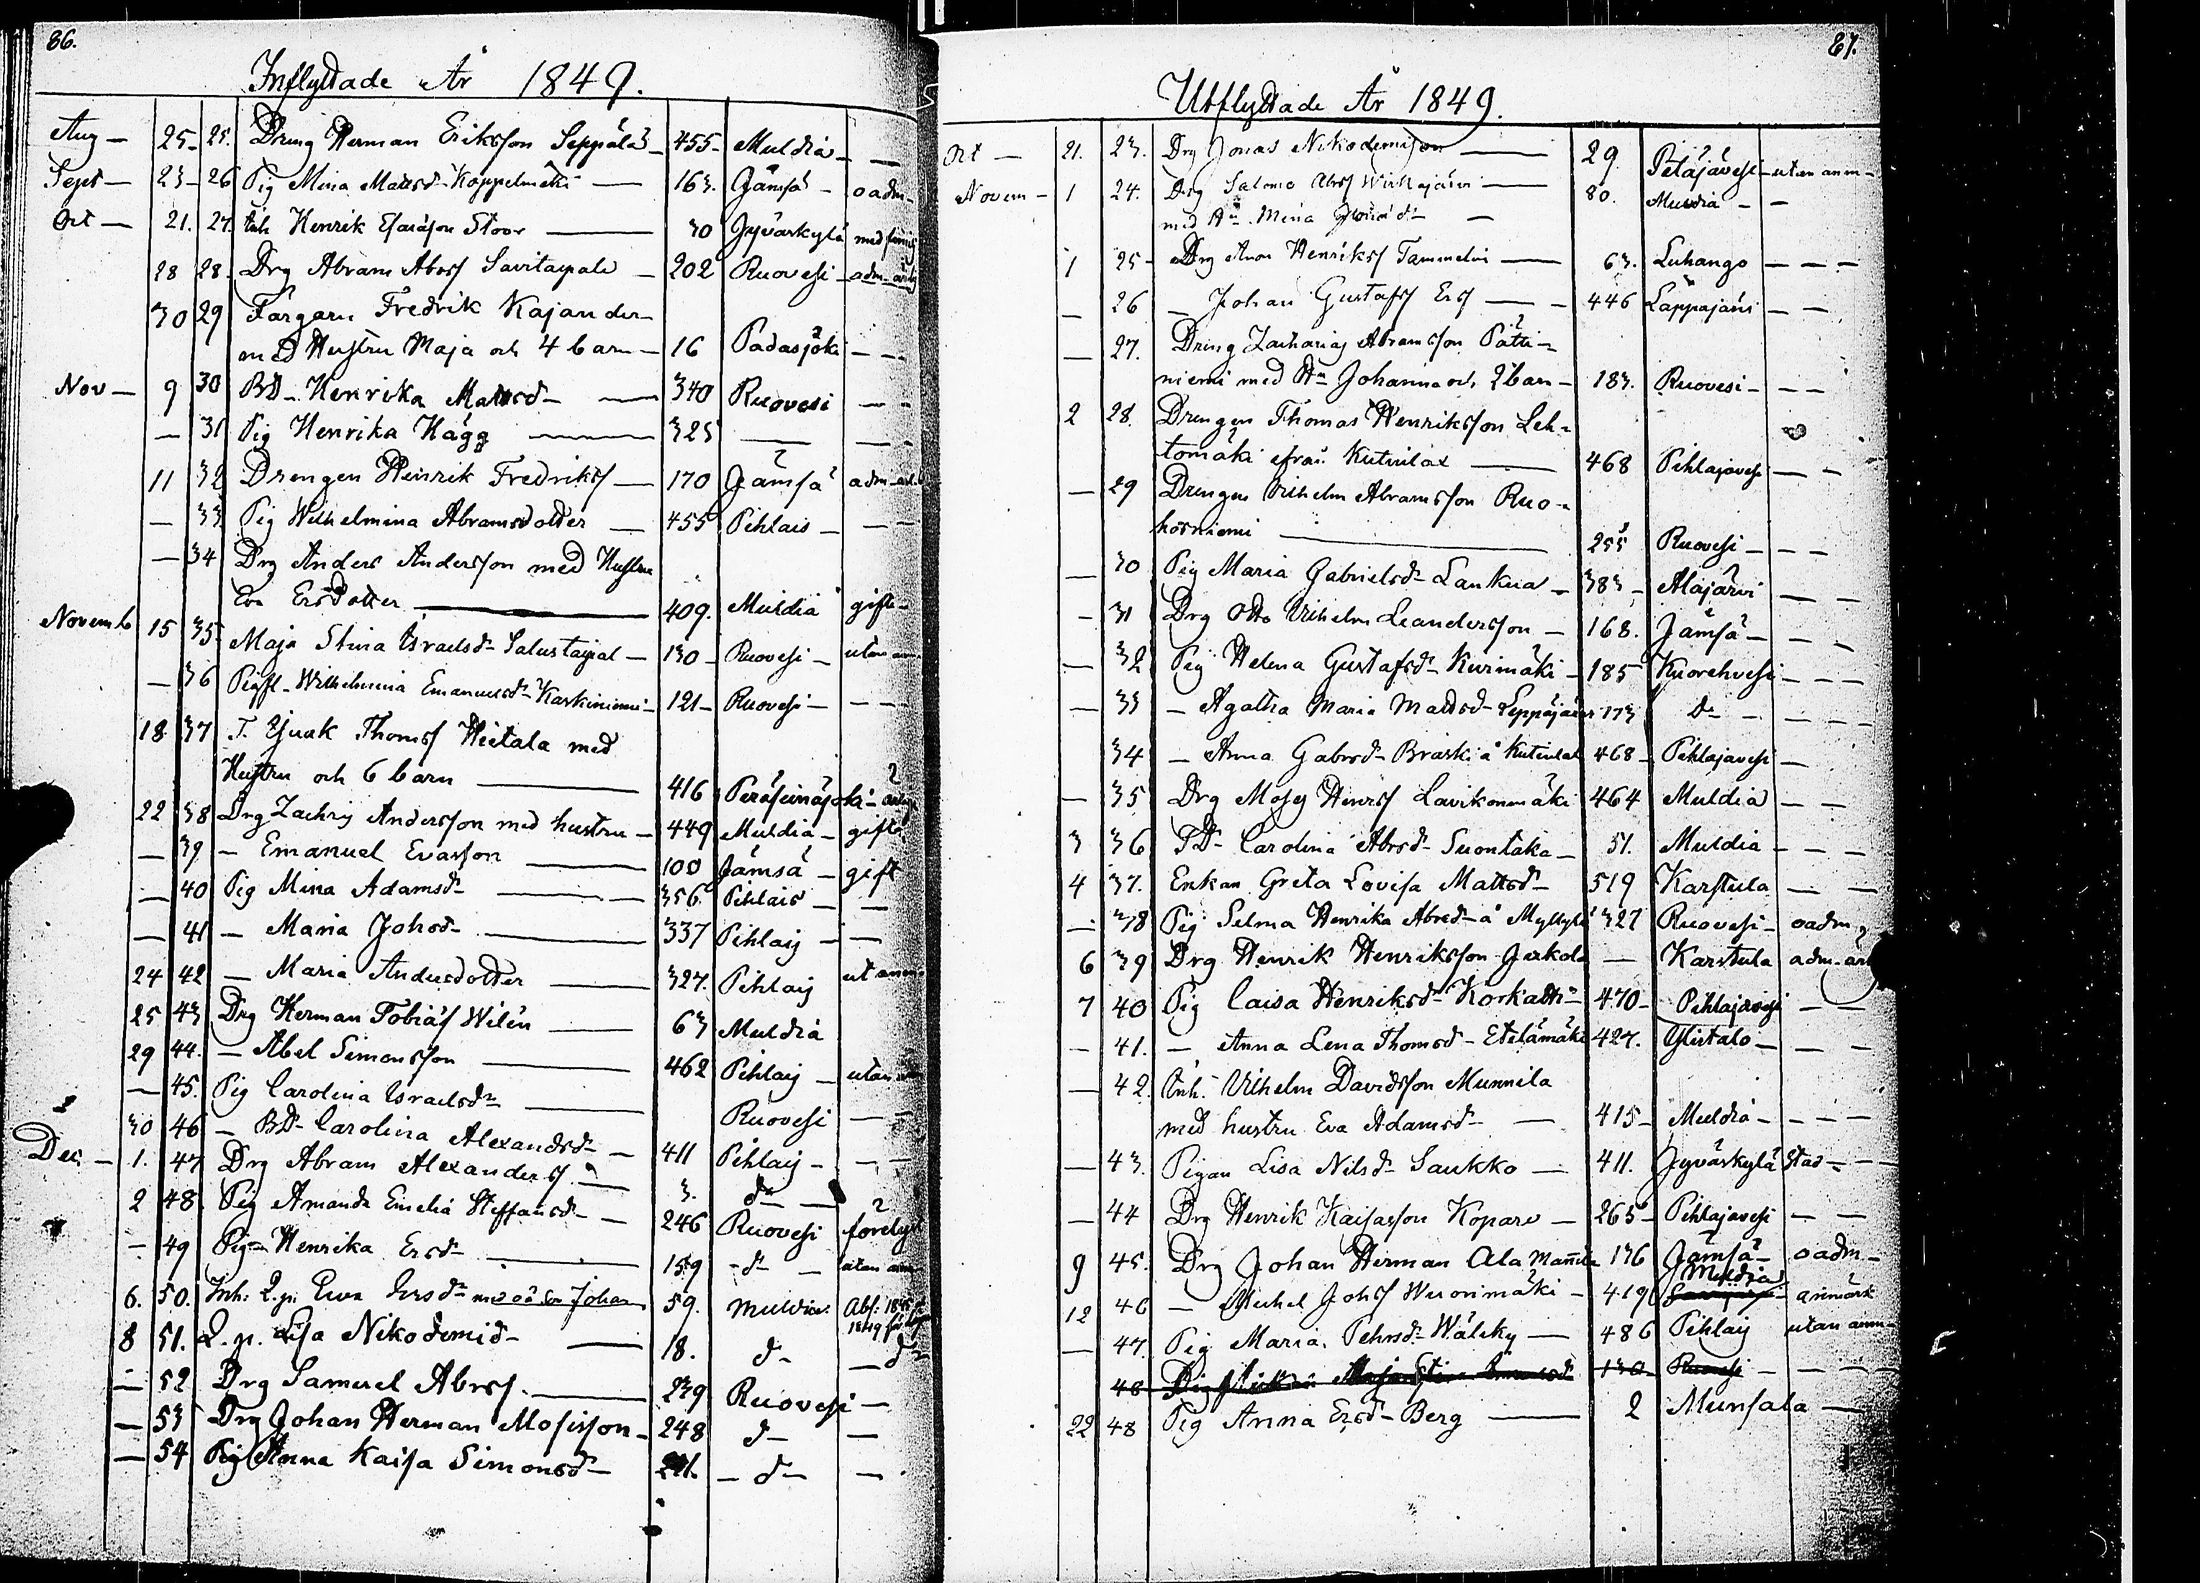 86.
Inflyttade År 1849.
Aug - 25 - 25. Dräng Herman Eriksson Seppälä - 455 - Muldia -
Sept - 23 - 26 Pig Mina Mattsd - Koppelmäki - 163. Jämsä - oadm -
Oct - 21. 27. Henrik Esaiasson Stoor - 30 Jyväskylä
28 28. Drg Abram Abrsf Savitaipale - 202 Ruovesi -
30 29 Färgaren Fredrik Kajander
med Hustru Maja och 4 barn - 16 Padasjoki - -
Nov - 9 30 BD - Henrika Mattsd - 340 Ruovesi - -
- 31 Pig Henrika Hägg - 325 - -
11 32 Drengen Henrik Fredriksf - 170 Jämsä adm
- 33 Pig Wilhelmina Abramsdotter - 455 Pihlais - -
- 34 Drg Anders Andersson med Hustru
Eva Ersdotter - 409. Muldia gift -
Novemb 15 35 Maja Stina Israelsd - - 130 - Ruovesi - utan
- 36 Wilhelmina Emanuelsd - Karkiniemi - 121 - Ruovesi - -
18 37 T. Thomsf Hietala med
Hustru och 6 barn - 416 Peräseinäjoki -
22 38 Drg Zachris Andersson med hustru - 449 Muldia - gift
- 39 - Emanuel Evasson - 100 Jämsä - gift
- 40 Pig Mina Adamsd - 356. Pihlais - -
- 41 - Maria Johsd - 337 Pihlaij - -
24 42 - Maria Andersdotter - 327. Pihlaij
25 43 Drg Herman Tobiasf Wilén - 63 Muldia
29 44. - Abel Simonsson - 462 Pihlaij - utan
- 45. Pig Carolina Israelsd - Ruovesi - -
30 46 - BD - Carolina Alexandsd - 411 Pihlaij - -
Dec - 1. 47 Drg Abram Alexandersf - 3. d - -
2 48. Pig Amanda Emelia Steffansd - 246 Ruovesi
- 49 Pig - Henrika Ersd - 159 - d - utan
6. 50. Inh: Q.p. Eva Ersd - Johan 59. Muldia
8 51. Q. p. Lisa Nikodemid - 18. d - - d
- 52 Drg Samuel Abrsf. - 239 Ruovesi -
- 53 Drg Johan Herman Mosisson - 248 d - -
- 54 Pig Anna Kaisa Simonsd - - d - -
87.
Utflyttade År 1849.
Oct - 21. 23. Drg Jonas Nikodemisson - 29. Petäjävesi - utan anm -
Novem - 1 24. Drg Salomo Abrsf Wirkajärvi - 80. Muldia - -
med Hu Mina -
1 25 - Drg Aron Henriksf Tammelin - 63. Luhango - - -
- 26 - Johan Gustafsf Ersf - 446 Lappajärvi - -
- 27. Dräng Zacharias Abramsson Pätti-
niemi med Hu Johanna och 2 barn - 183. Ruovesi - - -
2 28. Drengen Thomas Henriksson Leh-
tomäki ifrån Kutvilax - 468 Pihlajavesi - -
- 29 Drengen Vilhelm Abramsson Ruo-
horniemi - 255 Ruovesi - - -
- 30 Pig Maria Gabrielsd - Laukua - 383 - Alajärvi - -
- 31 Drg Otto Vilhelm Leandersson - 168. Jämsä - - -
- 32 Pig Helena Gustafsd - Kivimäki - 185 Kuorehvesi - - -
- 33 - Agatha Maria Mattsd - Leppäjärvi 173 d - - - -
34 - Anna Gabrsd - 468 - Pihlajavesi -
- 35 Drg Moses Henrsf Lavikonmäki 464 Muldia - -
3 36 PD - Carolina Abrsd - Suontaka - 51. Muldia - - -
4 37. Enkan Greta Lovisa Mattsd - 519 Karstula - -
- 38 Pig Selma Henrika Abrsd - å Myllylä 327 Ruovesi - oadm
6 39 Drg Henrik Henriksson Jerkola - Karstula adm
7 40 Pig Caisa Henriksd - Korkatti - 470 - Pihlajavesi - -
- 41. - Anna Lena Thomsd - Etelämäki 427. Ylistalo - - -
- 42. Inh. Vilhelm Davidsson Munnila
med hustru Eva Adamsd - 415 - Muldia - - -
- 43. Pigan Lisa Nilsd - Saukko - 411. Jyväskylä stad - -
- 44 Drg Henrik Kaisasson Kopare - 265 - Pihlajavesi - -
9 45. Drg Johan Herman Ala Mannila 176 Jämsä - oadm -
12 46 - Michel Johsf Wuorimäki - 419 Muldia anmärk
- 47. Pig Maria Pehrsd - Wälsky - 486 Pihlaij utan anm -
48 130 Ruovesi - -
22 48 Pig Anna Ersd - Berg - 2 Munsala -